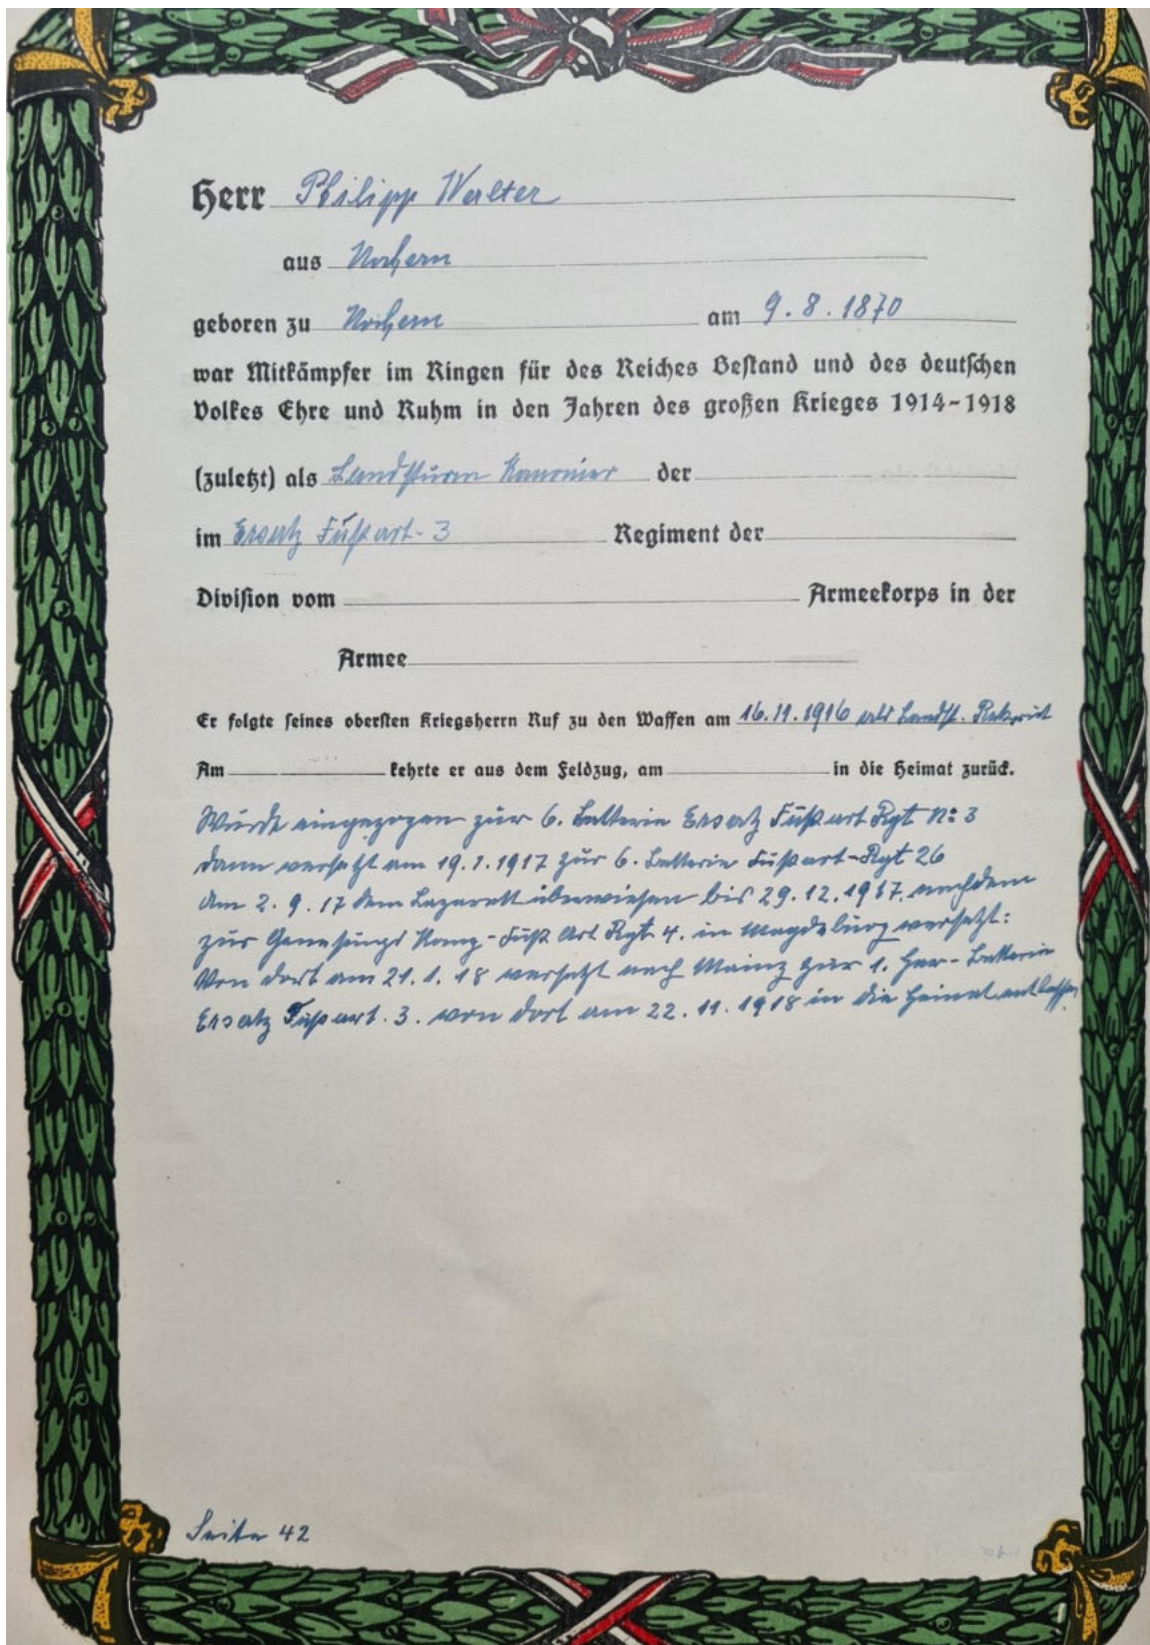 Herr Philipp Walter
aus Nochern
geboren zu Nochern am 9.8.1870
war Mitkämpfer im Ringen für des Reiches Bestand und des deutschen
Volkes Ehre und Ruhm in den Jahren des großen Krieges 1914-1918
(zuletzt) als Landsturm Kanonier der
im Ersatz Fußart. 3 Regiment der
Division vom Armeekorps in der
Armee
Er folgte seines obersten Kriegsherrn Ruf zu den Waffen am 16.11.1916 als Landst. Rekrut
Am kehrte er aus dem Feldzug, am in die Heimat zurück.
Wurde eingezogen zur 6. Batterie Ersatz Fußart Rgt N: 3
dann versetzt am 19.1.1917 zur 6. Batterie Fußart-Rgt 26
Am 2.9.17 dem Lazarett überwiesen bis 29.12.1917. nachdem
zur Genesungs Komp-Fuß Art Rgt 4. in Magdeburg versetzt:
Von dort am 21.1.18 versetzt nach Mainz zur 1. Batterie
Ersatz Fußart. 3. von dort am 22.11.1918 in die Heimat entlassen
Seite 42